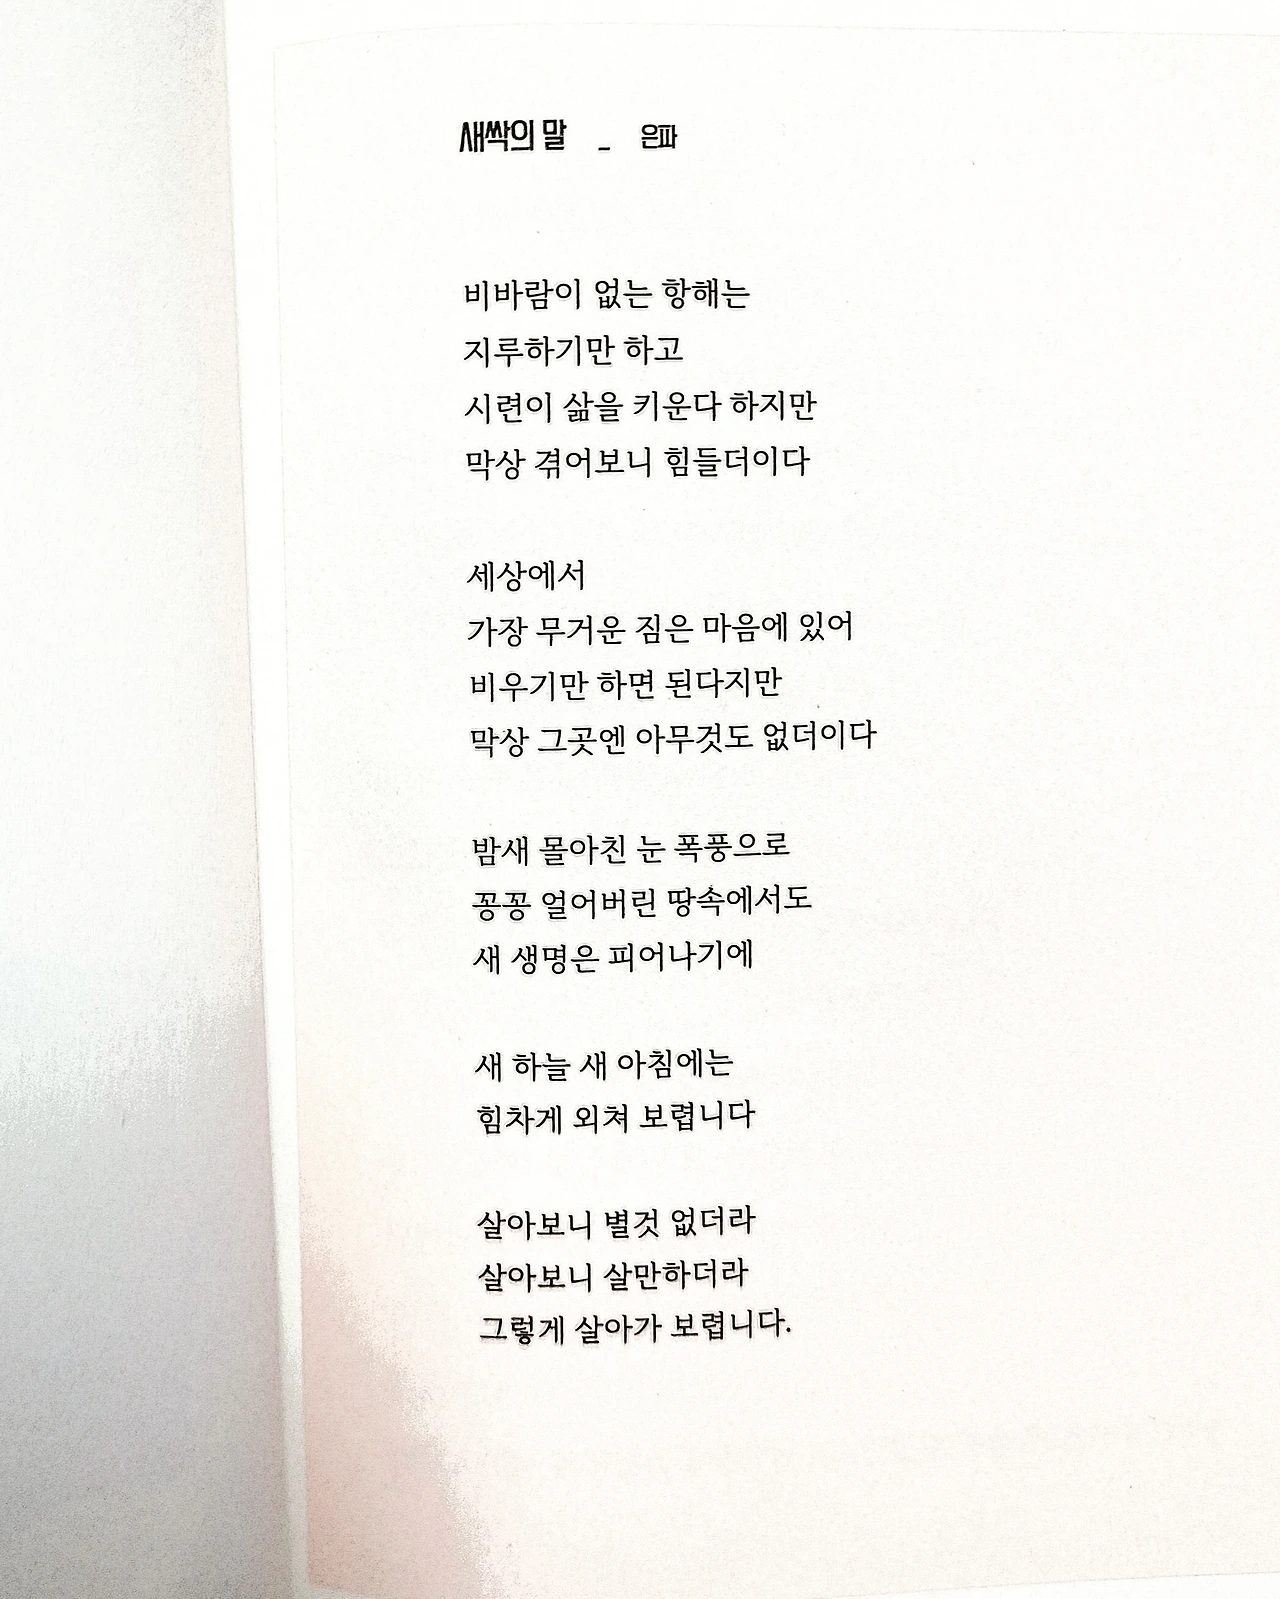 새싹의 말 _ 은파
비바람이 없는 항해는
지루하기만 하고
시련이 삶을 키운다 하지만
막상 겪어보니 힘들더이다
세상에서
가장 무거운 짐은 마음에 있어
비우기만 하면 된다지만
막상 그곳엔 아무것도 없더이다
밤새 몰아친 눈 폭풍으로
꽁꽁 얼어버린 땅속에서도
새 생명은 피어나기에
새 하늘 새 아침에는
힘차게 외쳐 보렵니다
살아보니 별것 없더라
살아보니 살만하더라
그렇게 살아가 보렵니다.